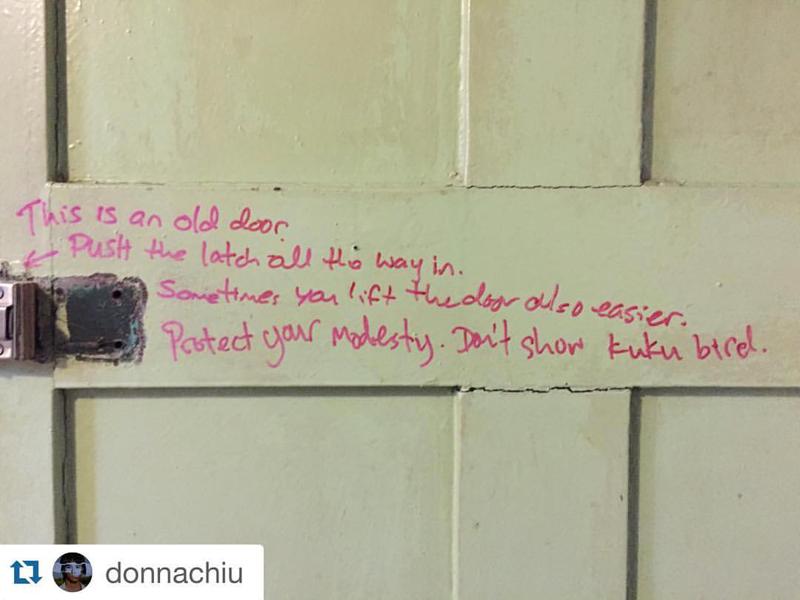 This is an old door.
← Push the latch all the way in.
Sometimes you lift the door also easier.
Protect your modesty. Don't show kuku bird.
donnachiu